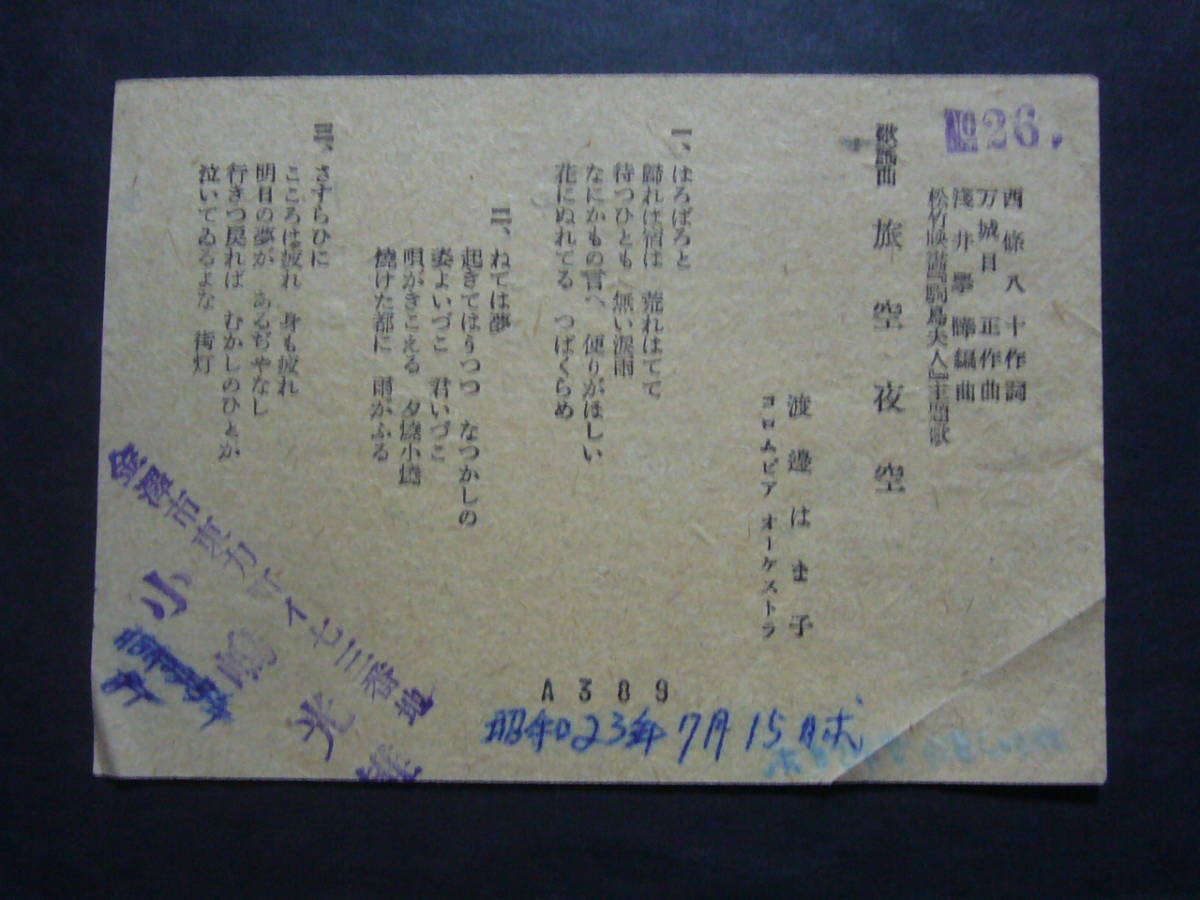 №26.
西條八十作詞
万城目正作曲
淺井擧曄編曲
松竹映畫『駒鳥夫人』主題歌
歌謠曲 旅空夜空
渡邊はま子
コロムビア オーケストラ
一、はろばろと
歸れば宿は 荒れはてて
待つひとも 無い涙雨
なにかもの言へ 便りがほしい
花にぬれてる つばくらめ
二、ねては夢
起きてはうつつ なつかしの
姿よいづこ 君いづこ
唄がきこえる 夕燒小燒
燒けた都に 雨がふる
三、さすらひに
こころは疲れ 身も疲れ
明日の夢が あるぢやなし
行きつ戻れば むかしのひとか
泣いてゐるよな 街灯
A389
昭和23年7月15日
七三番地
小 光